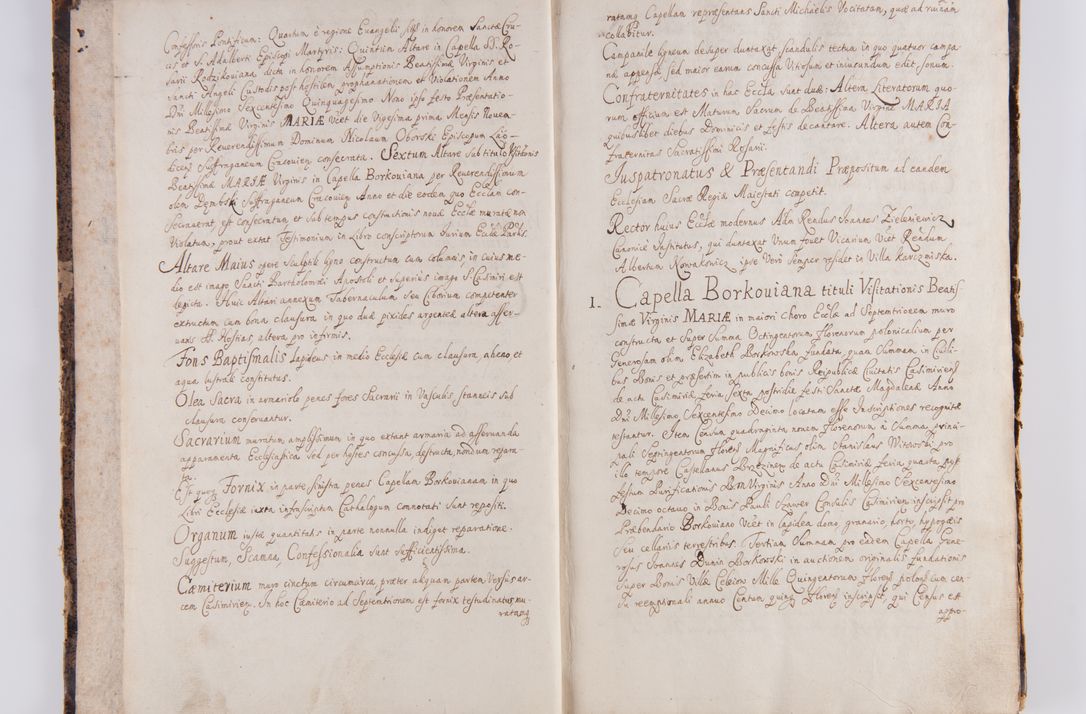 Confessoris Pontificum: Quartum è regione Euangelii sub in honorem Sanctæ Cru-
cis et S. Adalberti Episcopi Martyris: Quintum Altare in Capella SS. Ro-
sarii Rodzikouiana dicta in honorem Assumptionis Beatissimæ Virginis et
Sancti Angeli Custodis post hostilem prophanationem et Violationem Anno
Dni Millesimo Sexcentesimo Quinquagesimo Nono ipso festo Præsentatio-
nis Beatissimæ Virginis MARIÆ Vcèt die Vigesima prima Mensis Nouem-
bris per Reverendissimum Dominum Nicolaum Oborski Episcopum Lao-
dicens Suffraganeum Cracouien consecrata. Sextum Altare Sub titulo Visitationis
Beatissimæ MARIÆ Virginis in Capella Borkouiana per Reuerendissimum
olim Dembski Suffraganeum Cracouien Anno et die eodem quo Ecclam con-
secrauerat est consecratum et sub tempus constructionis nouæ Ecclæ muratæ non
Violatum, prout extat Testimonium in Libro conscriptorum Jurium Ecclæ Parlis.
Altare Maius opere sculptili ligno constructum cum columnis in cuius me-
dio est imago Sancti Bartholomæi Apostoli et superius imago S. Casimiri est
depicta. Huic Altari annexum Tabernaculum seu Ciborium competenter
extructum cum bona clausura in quo duæ pixides argenteæ altera asser-
uans SS. Hostias, altera pro infirmis.
Fons Baptismalis lapideus in medio Ecclesiæ cum clausura, aheno et
aqua lustrali constitutus.
Olea Sacra in armariolo penes fores Sacrarii in Vasculis stanneis sub
clausura conseruantur.
Sacrarium muratum amplissimum in quo extant armaria ad asseruanda
apparamenta Ecclesiastica sed per hostes concussa, destructa, nondum repara-
ta.
Est quoq Fornix in parte sinistra penes Capellam Borkouianam in quo
Libri Ecclesiæ iuxta infrascriptum Cathalogum connotati sunt repositi.
Organum iustæ quantitatis in parte nonnulla indiget reparatione.
Suggestum, Scamna, Confessionalia sunt sufficientissima.
Cæmiterium muro cinctum circumcirca, præter aliquam partem Versus ar-
cem Casimirien. In hoc Cæmiterio ad Septentrionem est fornix testudinatus mu-
ratamq
ratamq Capellam repræsentans Sancti Michaelis Vocitatam, quæ ad ruinam
collabitur.
Campanile ligneum desuper duntaxat scandulis tectum in quo quatuor campa-
næ appensæ sed maior earum concussa Vitiosum et iniucundum edit sonum.
Confraternitates in hac Eccla sunt duæ: Altera Literatorum quo-
rum officium est Maturum Sacrum de Beatissima Virgine MARIA
quibuslibet diebus Dominicis et festis decantare. Altera autem Con-
fraternitas Sacratissimi Rosarii.
Juspatronatus & Præsentandi Præpositum ad eandem
Ecclesiam Sacræ Regiæ Maiestati competit.
Rector huius Ecclæ modernus Adm Rendus Joannes Zieleniewicz
Canonicè Institutus, qui duntaxat Vnum fouet Vicarium Vcèt Rendum
Albertum Nowakowicz, ipse Verò semper residet in Villa Karczmiska.
1. Capella Borkouiana tituli Visitationis Beatis-
simæ Virginis MARIÆ in maiori choro Ecclæ ad Septentrionem muro
constructa et super Summa Octingentorum florenorum polonicalium per
Generosam olim Elizabeth Borkowska fundata, quam Summam in Ciuili-
bus Bonis et præsertim in publicis bonis Reipublicæ Ciuitatis Casimiriens
de actu Casimiriæ feria sexta postridie festi Sanctæ Magdalenæ Anno
Dni Millesimo Sexcentesimo Decimo locatam esse Inscriptiones recognitæ
testantur. Item Censum quadraginta nouem florenorum à Summa princi-
pali Septingentorum florens Magnificus olim Stanislaus Witowski pro
illo tempore Castellanus Brzezinen de actu Casimiriæ feria quarta post
festum Purificationis BM Virginis Anno Dni Millesimo Sexcentesimo
Decimo octauo in Bonis Pauli Sonwer Consulis Casimirien inscripsit pro
Præbendario Borkouiano Vcèt in lapidea domo, granario, horto, hypogæis
seu cellariis terrestribus. Tertiam Summam pro eadem Capella Gene-
rosus Joannes Dunin Borkowski in auctionem originalis fundationis
super Bonis Villæ Celeiow Mille Quingentorum florens polons cum cen-
su reemptionali annuo Centum quinq florens inscripsit, qui Census est
appro-